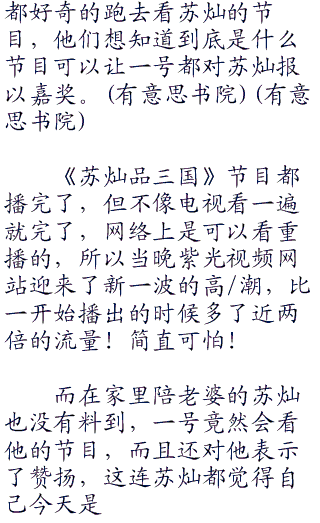 都好奇的跑去看苏灿的节
目，他们想知道到底是什么
节目可以让一号都对苏灿报
以嘉奖。(有意思书院)(有意
思书院)
《苏灿品三国》节目都
播完了，但不像电视看一遍
就完了，网络上是可以看重
播的，所以当晚紫光视频网
站迎来了新一波的高/潮，比
一开始播出的时候多了近两
倍的流量！简直可怕！
而在家里陪老婆的苏灿
也没有料到，一号竟然会看
他的节目，而且还对他表示
了赞扬，这连苏灿都觉得自
己今天是